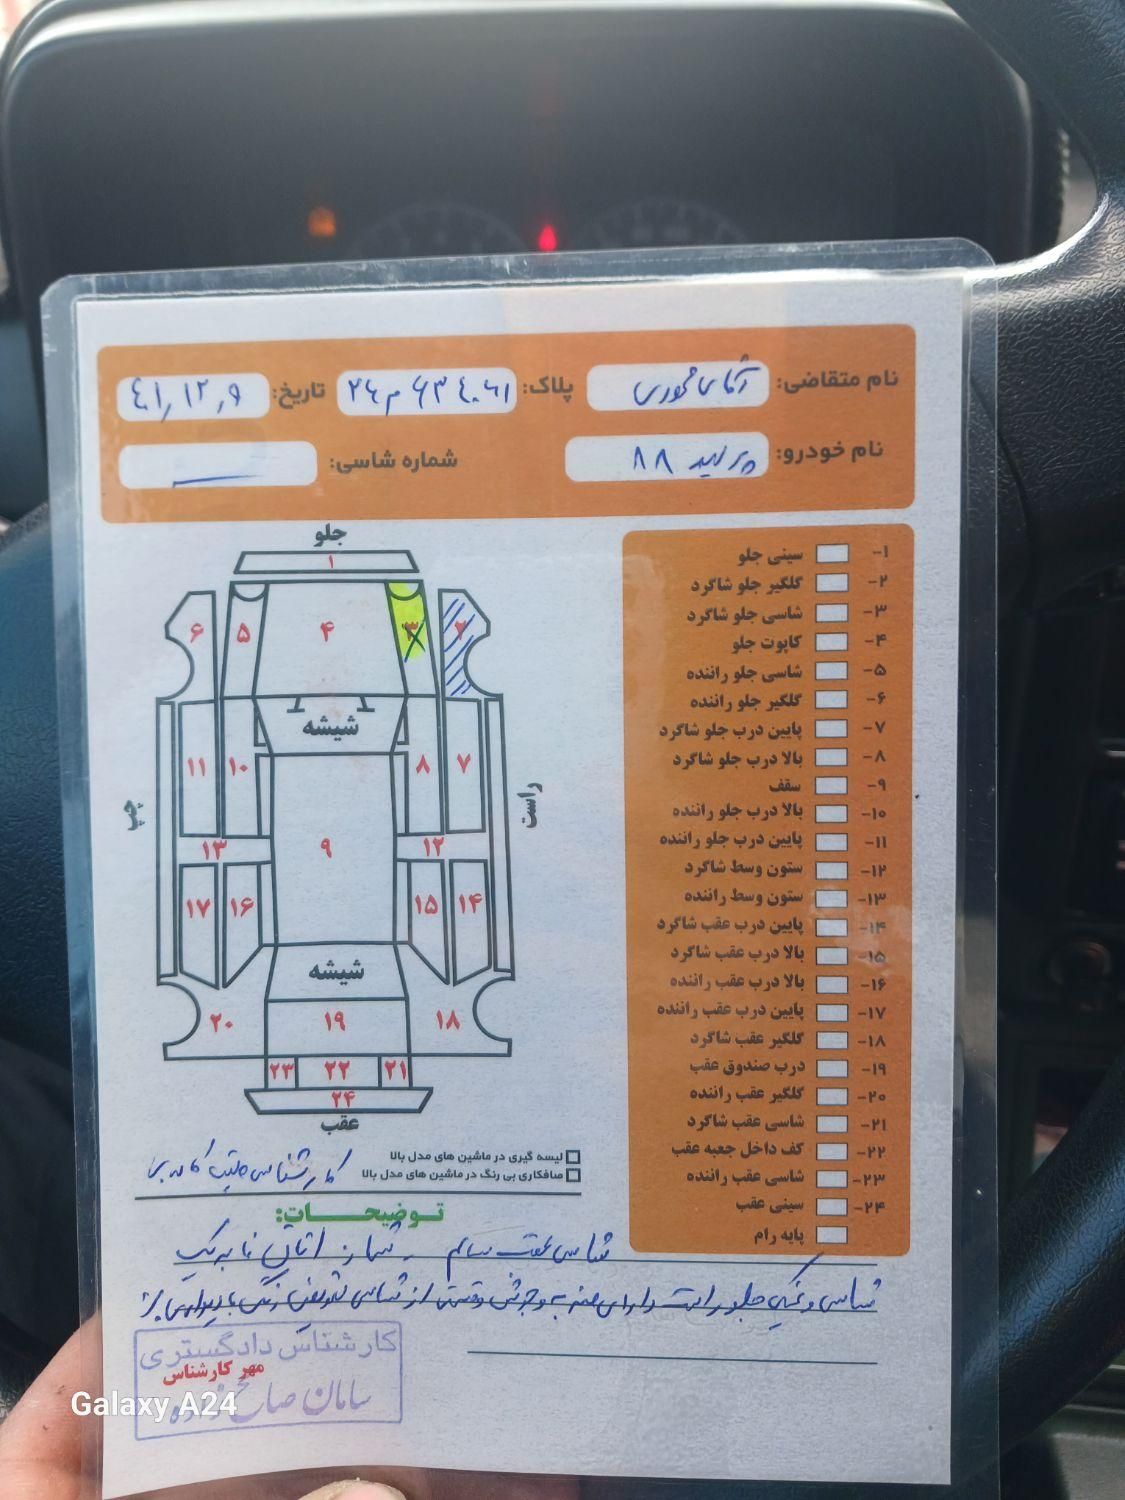 نام متقاضی: آقای محمودی پلاک: تاریخ: ۴۰۱,۱۲,۹
نام خودرو: پراید ۸۸ شماره شاسی: —
جلو
۱
۶ ۵ ۴ ۳ ۲
شیشه
۱۱ ۱۰ ۸ ۷
چپ
راست
۱۳ ۹ ۱۲
۱۷ ۱۶ ۱۵ ۱۴
شیشه
۲۰ ۱۹ ۱۸
۲۳ ۲۲ ۲۱
۲۴
عقب
۱- سینی جلو
۲- گلگیر جلو شاگرد
۳- شاسی جلو شاگرد
۴- کاپوت جلو
۵- شاسی جلو راننده
۶- گلگیر جلو راننده
۷- پایین درب جلو شاگرد
۸- بالا درب جلو شاگرد
۹- سقف
۱۰- بالا درب جلو راننده
۱۱- پایین درب جلو راننده
۱۲- ستون وسط شاگرد
۱۳- ستون وسط راننده
۱۴- پایین درب عقب شاگرد
۱۵- بالا درب عقب شاگرد
۱۶- بالا درب عقب راننده
۱۷- پایین درب عقب راننده
۱۸- گلگیر عقب شاگرد
۱۹- درب صندوق عقب
۲۰- گلگیر عقب راننده
۲۱- شاسی عقب شاگرد
۲۲- کف داخل جعبه عقب
۲۳- شاسی عقب راننده
۲۴- سینی عقب
پایه رام
لیسه گیری در ماشین های مدل بالا
صافکاری بی رنگ در ماشین های مدل بالا
کارشناسی
توضیحات:
شاسی عقب سالم - ستون اتاق
شاسی و سینی جلو راست دارای ضربه و جوش قسمتی از شاسی تعویض رنگ
کارشناس دادگستری
مهر کارشناس
سامان صالح زاده
Galaxy A24